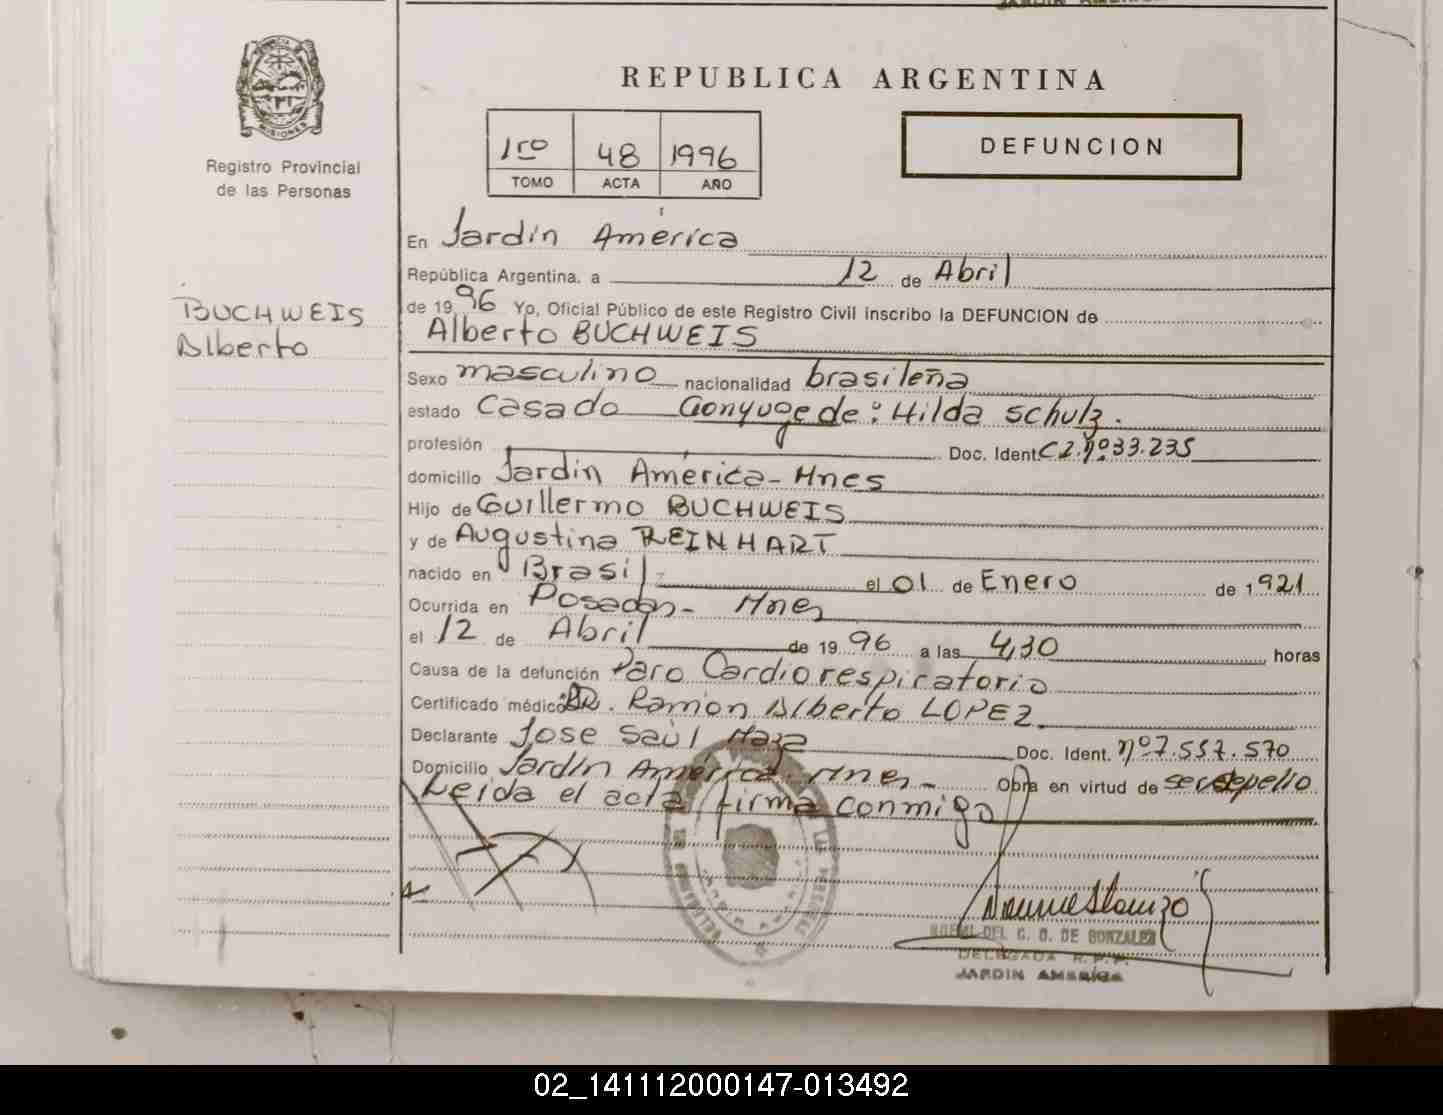 REPUBLICA ARGENTINA
MISIONES
Registro Provincial
de las Personas
1ro 48 1996
TOMO ACTA AÑO
DEFUNCION
BUCHWEIS
Alberto
En Jardín América
República Argentina, a 12 de Abril
de 1996 Yo, Oficial Público de este Registro Civil inscribo la DEFUNCION de
Alberto BUCHWEIS
Sexo masculino nacionalidad brasileña
estado Casado Conyuge de: Hilda Schulz.
profesión Doc. Ident. C2.nº33.235
domicilio Jardín América - Mnes
Hijo de Guillermo BUCHWEIS
y de Augustina REINHART
nacido en Brasil el 01 de Enero de 1921
Ocurrida en Posadas - Mnes
el 12 de Abril de 1996 a las 4,30 horas
Causa de la defunción Paro Cardiorespiratorio
Certificado médico DR. Ramón Alberto LOPEZ
Declarante Jose Saúl Doc. Ident. nº7.557.570
Domicilio Jardín América - Mnes - Obra en virtud de ser sepelio
Leída el acta firma conmigo
DEL C. D. DE GONZALEZ
DELEGADA R.P.P.
JARDIN AMERICA
02_141112000147-013492